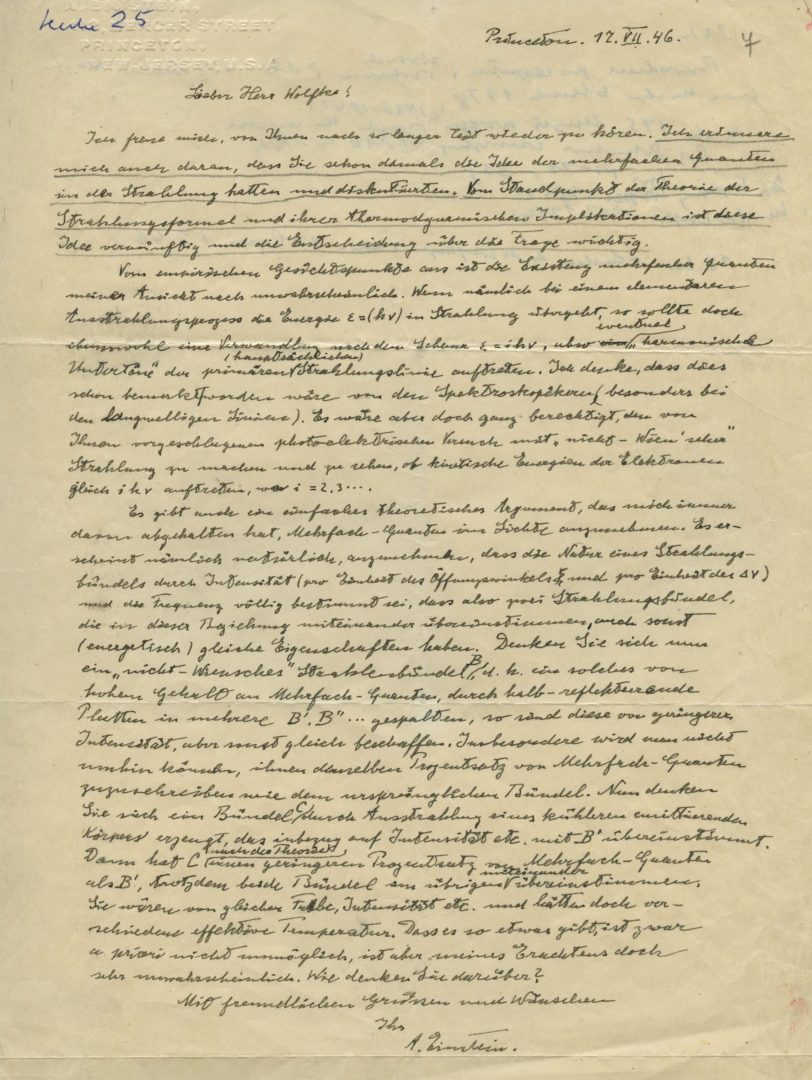 25
PRINCETON,
NEW JERSEY, U.S.A.
Princeton. 17. VII. 46.
Lieber Herr Wolfke!
Ich freue mich, von Ihnen nach so langer Zeit wieder zu hören. Ich erinnere
mich auch daran, dass Sie schon damals die Idee der mehrfachen Quanten
in der Strahlung hatten und diskutierten. Vom Standpunkt der Theorie der
Strahlungsformel und ihrer thermodynamischen Implikationen ist diese
Idee vernünftig und die Entscheidung über die Frage wichtig.
Vom empirischen Gesichtspunkte aus ist die Existenz mehrfacher Quanten
meiner Ansicht nach unwahrscheinlich. Wenn nämlich bei einem elementaren
Ausstrahlungsprozess die Energie ε=(hν) in Strahlung übergeht, so sollte doch
ebensowohl eine Verwandlung nach dem Schema ε=ihν, also eventuel „harmonische
Untertöne" der primären (hauptsächlichen) Strahlungslinie auftreten. Ich denke, dass dies
schon bemerkt worden wäre von den Spektroskopikern (besonders bei
den langwelligen Linien). Es wäre aber doch ganz berechtigt, den von
Ihnen vorgeschlagenen photoelektrischen Versuch mit „nicht-Wien'scher"
Strahlung zu machen und zu sehen, ob kinetische Energien der Elektronen
gleich ihν auftreten, wo i = 2,3....
Es gibt auch ein einfaches theoretisches Argument, das mich immer
davon abgehalten hat, Mehrfach-Quanten im Lichte anzunehmen. Es er-
scheint nämlich natürlich, anzunehmen, dass die Natur eines Strahlungs-
bündels durch Intensität (pro Einheit des Öffnungswinkels und pro Einheit der Δν)
und die Frequenz völlig bestimmt sei, dass also zwei Strahlungsbündel,
die in dieser Beziehung miteinander übereinstimmen, auch sonst
(energetisch) gleiche Eigenschaften haben. Denken Sie sich nun
ein „nicht-Wiensches" Strahlenbündel B, d. h. ein solches von
hohem Gehalt an Mehrfach-Quanten, durch halb-reflektierende
Platten in mehrere B', B" ... gespalten, so sind diese von geringerer
Intensität, aber sonst gleich beschaffen. Insbesondere wird man nicht
umhin können, ihnen denselben Prozentsatz von Mehrfach-Quanten
zuzuschreiben wie dem ursprünglichen Bündel. Nun denken
Sie sich ein Bündel C, durch Ausstrahlung eines kühleren emittierenden
Körpers erzeugt, das inbezug auf Intensität etc. mit B' übereinstimmt.
Dann hat C (nach der Theorie) einen geringeren Prozentsatz von Mehrfach-Quanten
als B', trotzdem beide Bündel im übrigen miteinander übereinstimmen.
Sie wären von gleicher Farbe, Intensität etc. und hätten doch ver-
schiedene effektive Temperatur. Dass es so etwas gibt, ist zwar
a priori nicht unmöglich, ist aber meines Erachtens doch
sehr unwahrscheinlich. Wie denken Sie darüber?
Mit freundlichen Grüssen und Wünschen
Ihr
A. Einstein.